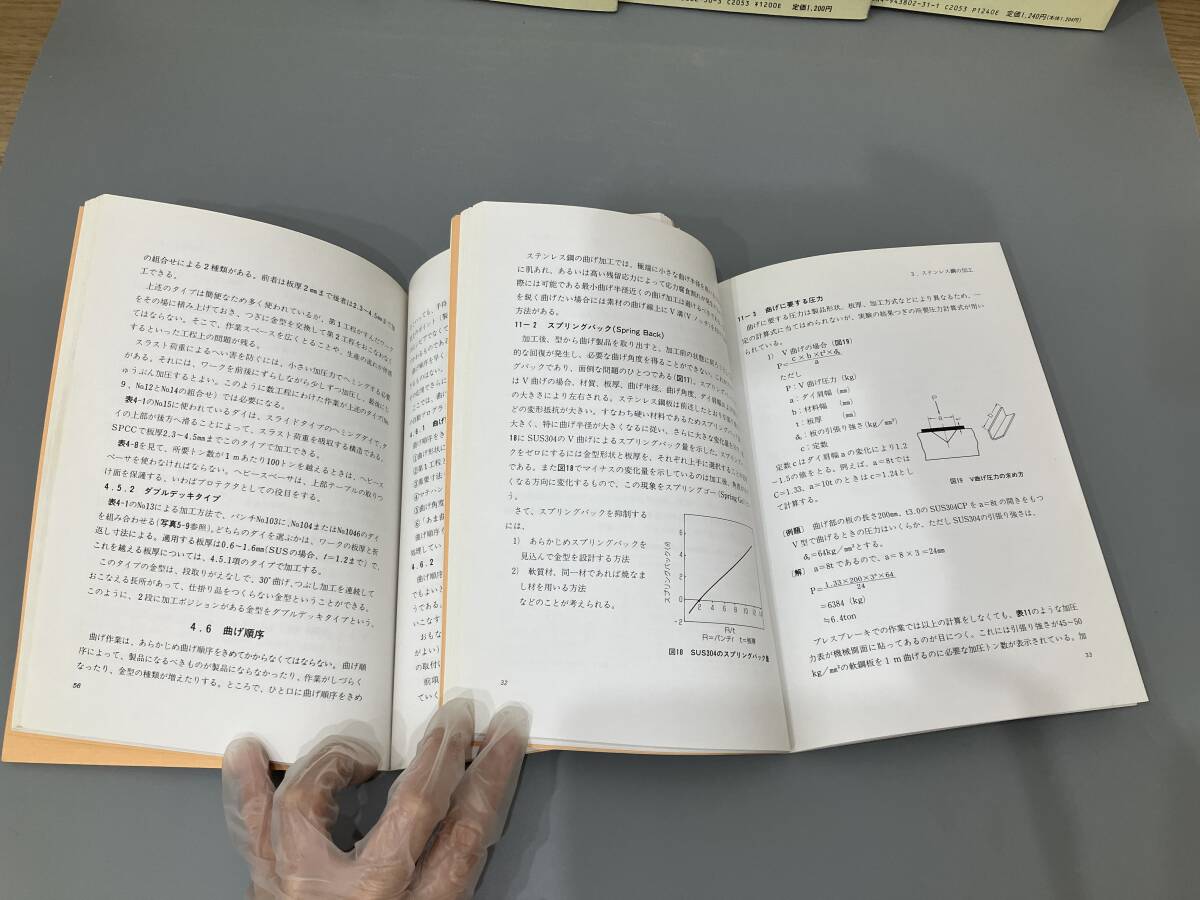 C2053 ¥1200E 定価1,200円
C2053 P1240E 定価1,240円(本体1,204円)
の組合せによる2種類がある。前者は板厚2mmまで後者は2.3〜4.5mmまで加
工できる。
上述のタイプは簡便なため多く使われているが、第1工程がすんだワーク
をその場に積み上げておき、つぎに金型を交換して第2工程をおこなわなく
てはならない。そこで、作業スペースを広くとることや、生産の流れが停滞
するといった工程上の問題が残る。
スラスト荷重によるへい害を防ぐには、小さい加圧力でヘミングする必要
がある。それには、ワークを前後にずらしながら少しずつ加圧し、最後にし
ゅうぶん加圧するとよい。このように数工程にわけた作業が上述のタイプ(No
9、No12とNo14の組合せ)では必要になる。
表4-1のNo15に使われているダイは、スライドタイプのヘミングダイで、ダ
イの上部が後方へ滑ることによって、スラスト荷重を吸収する構造である。
SPCCで板厚2.3〜4.5mmまでこのタイプで加工できる。
表4-8を見て、所要トン数が1mあたり100トンを越えるときは、ヘビース
ペーサを使わなければならない。ヘビースペーサは、上部テーブルの取りつ
け面を保護する、いわばプロテクタとしての役目をする。
4.5.2 ダブルデッキタイプ
表4-1のNo13による加工方法で、パンチNo103に、No104またはNo1046のダイ
を組み合わせる(写真5-9参照)。どちらのダイを選ぶかは、ワークの板厚と折
返し寸法による。適用する板厚は0.6〜1.6mm(SUSの場合、t=1.2まで)で、
これを越える板厚については、4.5.1項のタイプで加工する。
このタイプの金型は、段取りがえなしで、30°曲げ、つぶし加工を連続して
おこなえる長所があって、仕掛り品をつくらない金型ということができる。
このように、2段に加工ポジションがある金型をダブルデッキタイプという。
4.6 曲げ順序
曲げ作業は、あらかじめ曲げ順序をきめてかからなくてはならない。曲げ順
序によって、製品になるべきものが製品にならなかったり、作業がしづらく
なったり、金型の種類が増えたりする。ところで、ひと口に曲げ順序をきめ
56
4.6.1 曲げ
曲げ順序をき
①曲げ形状に
②第1工程と
③重要寸法
④マテハン
⑤曲げ角度
⑥「あま曲
曲げ順序を
処理してい
4.6.2
曲げ順序
でもよいと
うである。
いこなす
おもな
がよい)
の取付け
前項
ていく
ステンレス鋼の曲げ加工では、極端に小さな曲げ半径を
に肌あれ、あるいは高い残留応力によって応力腐食割れが
際には可能である最小曲げ半径近くの曲げ加工は避ける
を鋭く曲げたい場合には素材の曲げ線上にV溝(Vノッチ)を
方法がある。
11-2 スプリングバック(Spring Back)
加工後、型から曲げ製品を取り出すと、加工前の状態に戻
的な回復が発生し、必要な曲げ角度を得ることができない。これが
ングバックであり、面倒な問題のひとつである(図11)。スプリング
はVの曲げの場合、材質、板厚、曲げ半径、曲げ角度、ダイ肩幅
の大きさにより左右される。ステンレス鋼板は前述したとおり
どの変形抵抗が大きい。すなわち硬い材料であるためスプリング
大きく、特に曲げ半径が大きくなるに従い、さらに大きな変化量
18にSUS304のV曲げによるスプリングバック量を示した。スプ
クをゼロにするには金型形状と板厚を、それぞれ上手に選択すること
である。また図18でマイナスの変化量を示しているのは加工後、角度が
くなる方向に変化するもので、この現象をスプリングゴー(Spring Go)
う。
さて、スプリングバックを抑制する
には、
1) あらかじめスプリングバックを
見込んで金型を設計する方法
2) 軟質材、同一材であれば焼なま
し材を用いる方法
などのことが考えられる。
スプリングバック(θ)
6
4
2
0
-2
2 4 6 8 10 12 14
R/t
R=パンチr t=板厚
図18 SUS304のスプリングバック量
32
3. ステンレス鋼の加工
11-3 曲げに要する圧力
曲げに要する圧力は製品形状、板厚、加工方式などにより異なるため、一
定の計算式に当てはめられないが、実験の結果つぎの所要圧力計算式が用い
られている。
1) V曲げの場合(図19)
P=c×b×t²×dₜ/a
ただし
P:V曲げ圧力(kg)
a:ダイ肩幅(mm)
b:材料幅(mm)
t:板厚(mm)
dₜ:板の引張り強さ(kg/mm²)
c:定数
定数cはダイ肩幅aの変化により1.2
-1.5の値をとる。例えば、a=8tでは
C=1.33、a=10tのときはc=1.24とし
て計算する。
図19 V曲げ圧力の求め方
(例題) 曲げ部の板の長さ200mm、t3.0のSUS304CPをa=8tの開きをもつ
V型で曲げるときの圧力はいくらか。ただしSUS304の引張り強さは、
dₜ=64kg/mm²とする。
(解) a=8tであるので、a=8×3=24mm
P=1.33×200×3²×64/24
=6384(kg)
≒6.4ton
プレスブレーキでの作業では以上の計算をしなくても、表11のような加圧
力表が機械側面に貼ってあるのが目につく。これには引張り強さが45〜50
kg/mm²の軟鋼板を1m曲げるのに必要な加圧トン数が表示されている。加
33